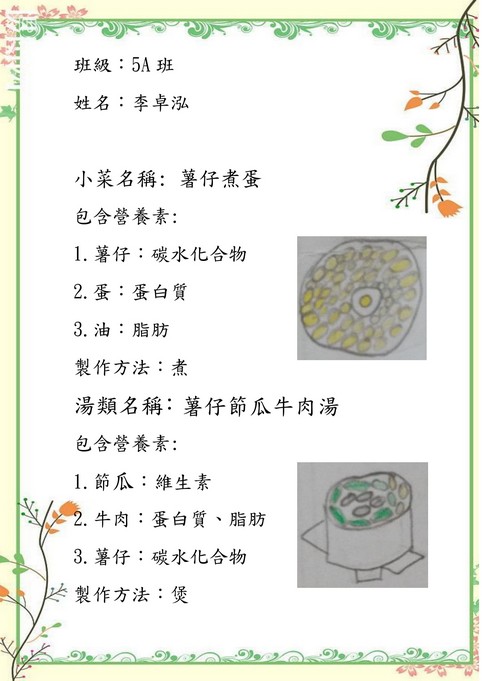 班級：5A 班
姓名：李卓泓
小菜名稱: 薯仔煮蛋
包含營養素:
1.薯仔：碳水化合物
2.蛋：蛋白質
3.油：脂肪
製作方法：煮
湯類名稱: 薯仔節瓜牛肉湯
包含營養素:
1.節瓜：維生素
2.牛肉：蛋白質、脂肪
3.薯仔：碳水化合物
製作方法：煲